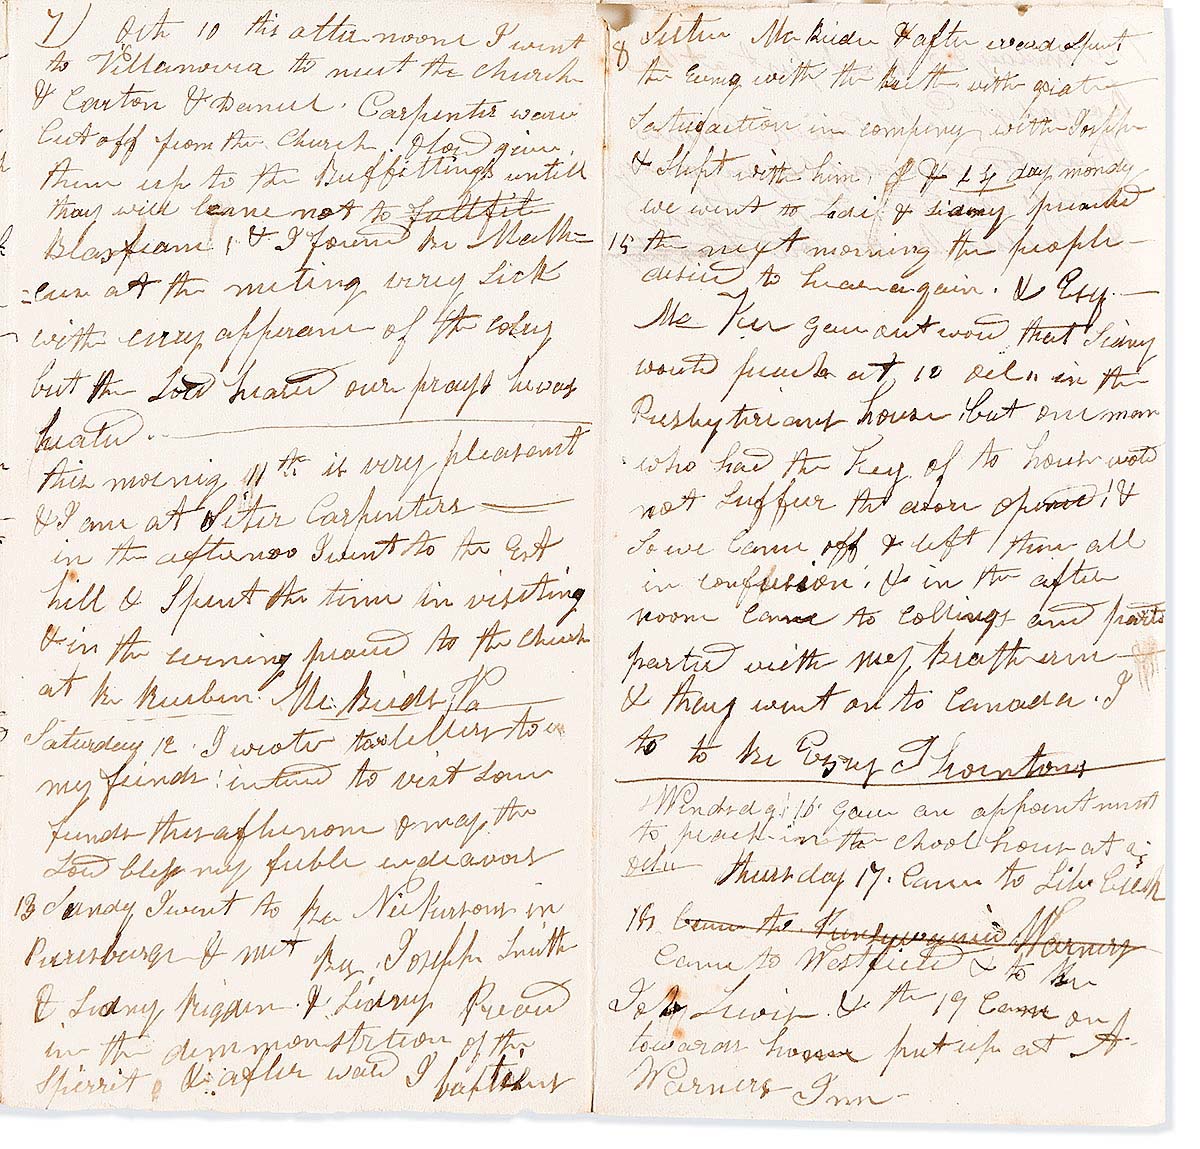 7) Octh 10 this after noone I went
to Villanovia to meet the church
& Carton & Daniel Carpenter ware
Cut off from the Church. & lord give
them up to the Buffittings untill
thay will lerne not to
Blasfeam; & I found Br Math=
=ews at the meting very Sick
with evry apperanc of the
but the Lord heard oure prays he was
heald.
this mornig 11th is very pleasent
& I am at Sister Carpenters
in the afternoo I went to the Est
hill & Spent the time in visiting
& in the evening preacd to the Church
at Br Rueben Mc Brids Va
Saturday 12. I wrote two letters to
my frends; intend to visit Some
frends this afternoone & may the
Lord bless my feble indeavors
13 Sundy I went to Br Nickersons in
Perresburge & met Br. Joseph Smith
& Sidny Rigdon & Sidny Preacd
in the dimmonstrtion of the
Spirrit, & after ward I baptised
8 Sister Mc Bride & after wards Spent
the Eving with the breth with grate
Satisfaction in company with Joseph
& Slept with him. & 14 day monday
we went to Lodi & Sidny preached
15 the next morning the people
desired to heare again. & Esq.
Mc Ker gave out word that Sidny
would preach at 10 Oclk in the
Presbytireans house; but one man
who had the key of to house wold
not Suffer the doore opened; &
So we Came off & left them all
in confusion; & in the after
noone Came to Collings and parts
parted with my Bratherin
& thay went on to Canada. I
to to Br Ezry Thorntons
Wendsdy; 16 gave an appointment
to preach in the chool house at
Oclk thursday 17. Came to Silver Creek
18 Came to Warners
Came to Westfield & to Br
Job Lewis. & the 19 Came on
towards home put up at A
Warners Inn